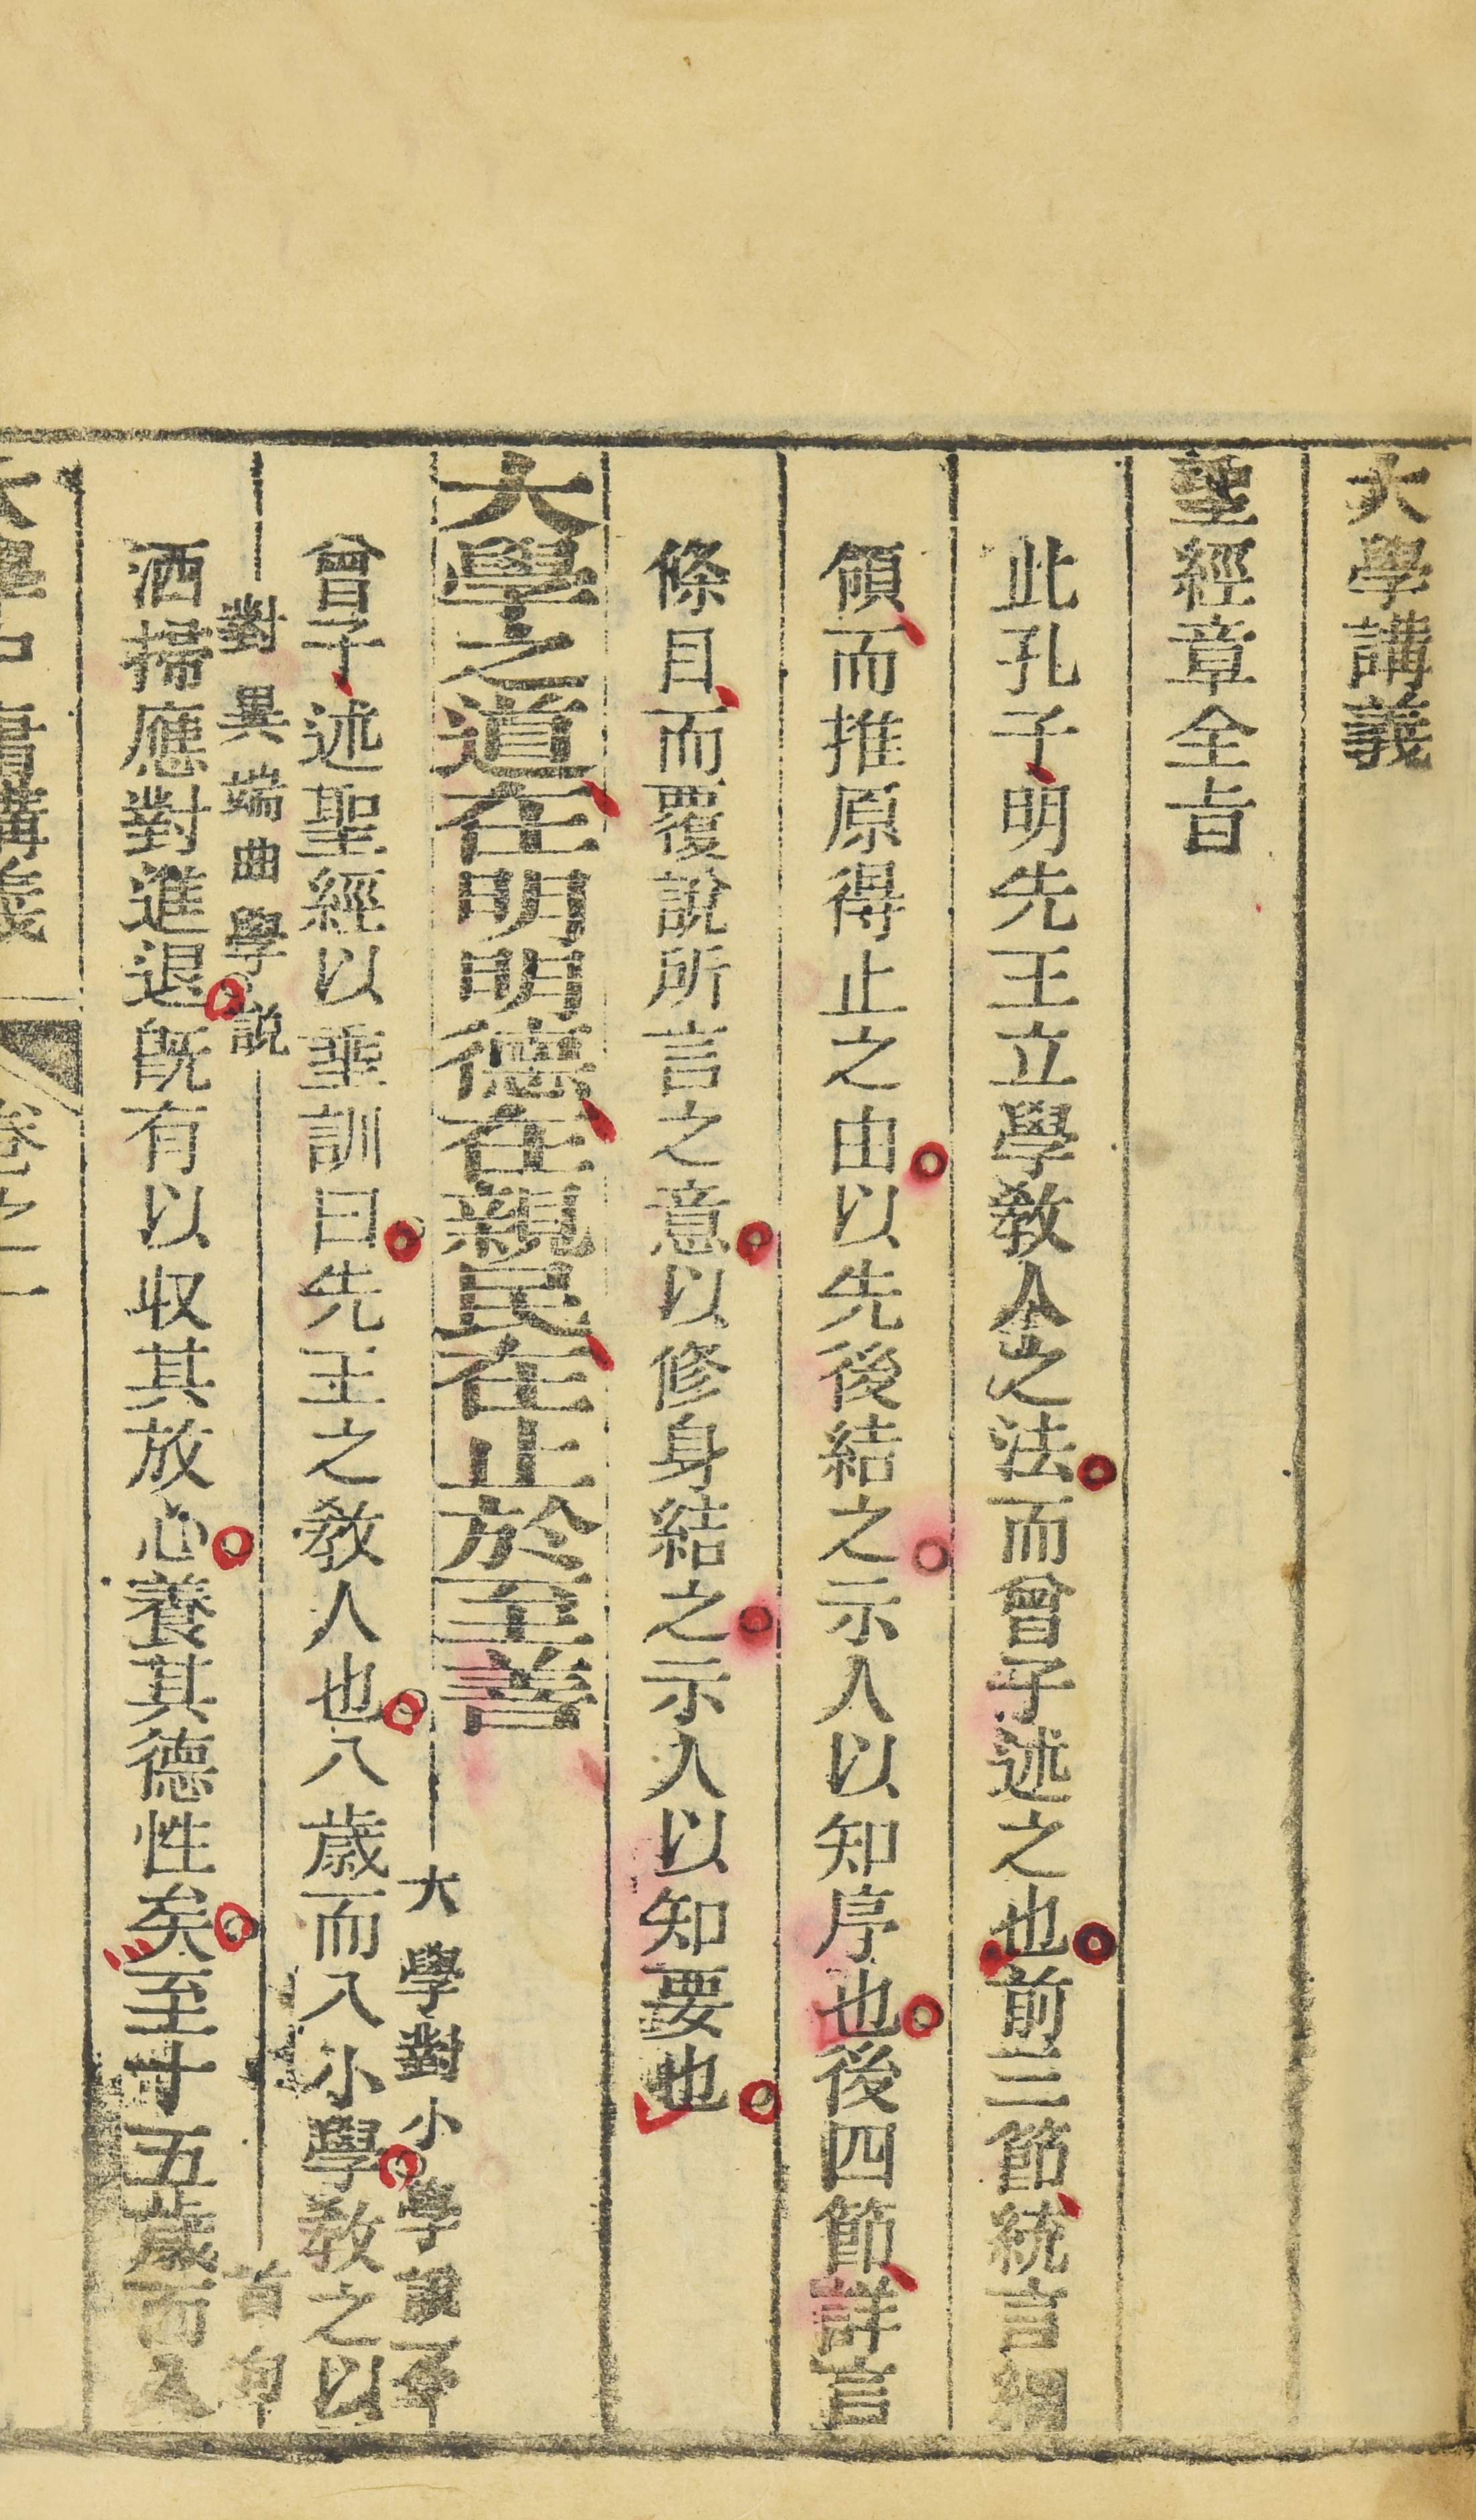 大學講義
聖經章全旨
此孔子明先王立學教人之法而曾子述之也前三節統言綱
領而推原得止之由以先後結之示人以知序也後四節詳言
條目而覆說所言之意以修身結之示人以知要也
大學之道在明明德在親民在止於至善
大學對小學說
曾子述聖經以垂訓曰先王之教人也八歲而入小學教之以
對異端曲學說
首句
洒掃應對進退既有以収其放心養其德性矣至十五歲而入
大學中庸講義 卷之一